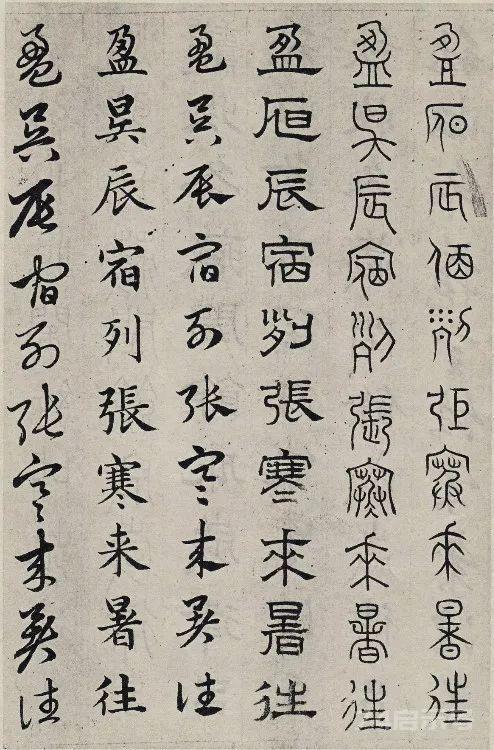 盈昃辰宿列張寒來暑往
盈昃辰宿列張寒來暑往
盈昃辰宿列張寒來暑往
盈昃辰宿列张寒来暑往
盈昃辰宿列張寒来暑往
盈昃辰宿列张寒来暑往